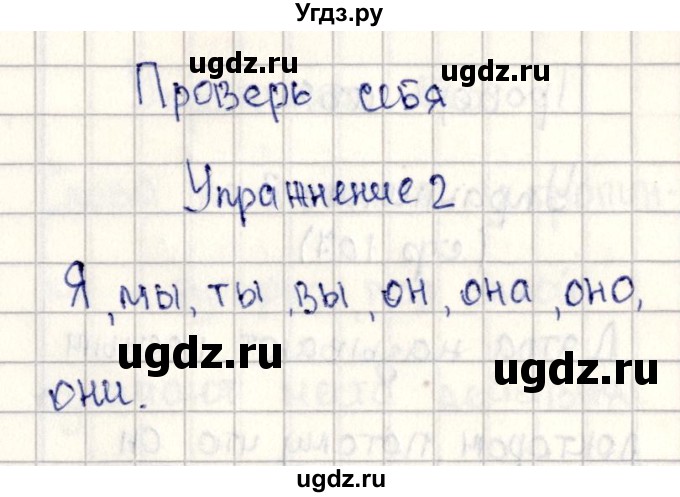 Угдз.ру
Проверь себя
ugdz.ru
ugdz.ru
Упражнение 2
Я, мы, ты, вы, он, она, оно,
ugdz.ru
ugdz.ru
они.
ugdz.ru